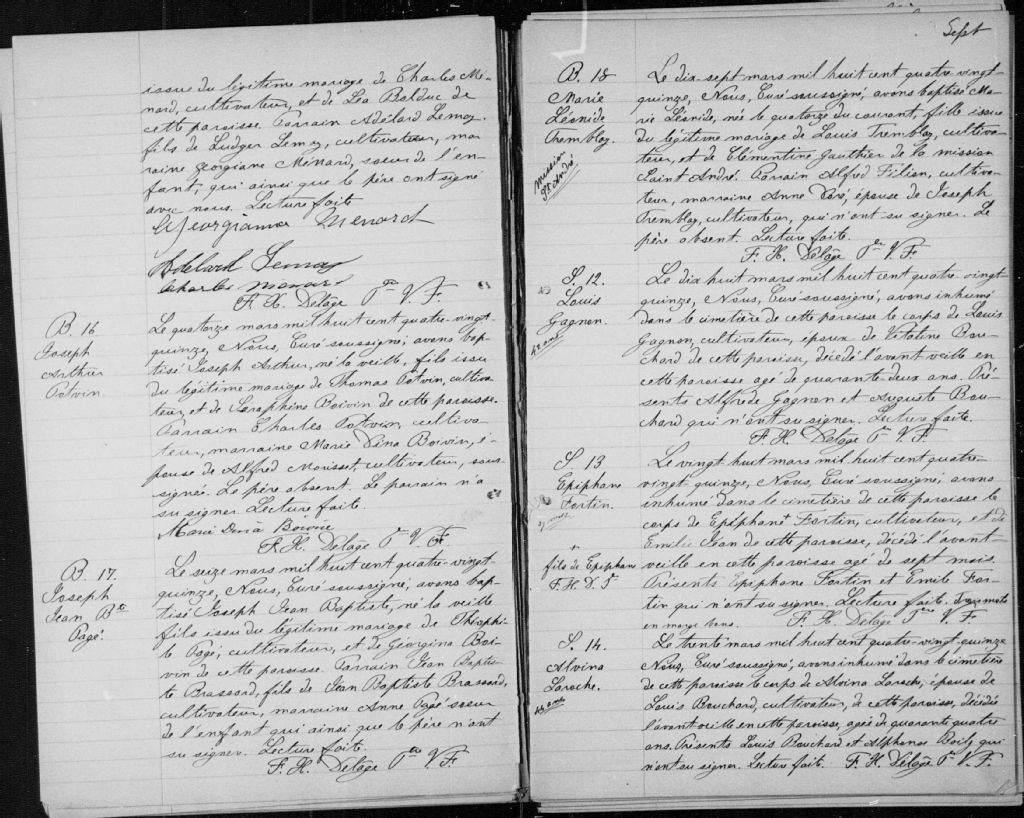 issue du légitime mariage de Charles Mé-
nard, cultivateur, et de Léa Balduc de
cette paroisse. Parrain Adélard Lemay
fils de Ludger Lemay, cultivateur, mar
raine Georgiane Ménard, soeur de l'en-
fant, qui ainsi que le père ont signé
avec nous. Lecture faite
Georgiana Menard
Adelard Lemay
Charles Menard
F. X. Delâge Ptre V. F.
B. 16
Joseph
Arthur
Potvin.
Le quatorze mars mil huit cent quatre-vingt-
quinze, Nous, Curé soussigné, avons bap-
tisé Joseph Arthur, né la veille, fils issu
du légitime mariage de Thomas Potvin, cultiva-
teur, et de Séraphine Boivin de cette paroisse.
Parrain Charles Potvin, cultiva-
teur, marraine Marie Dina Boivin, é-
pouse de Alfred Morisset, cultivateur, sous-
signée. Le père absent. Le parrain n'a
su signer. Lecture faite.
F. X. Delâge Ptr V. F.
B. 17.
Joseph
Jean Bte
Pagé.
Le seize mars mil huit cent quatre-vingt-
quinze, Nous, Curé soussigné, avons bap-
tisé Joseph Jean Baptiste, né la veille
fils issu du légitime mariage de Théophi-
le Pagé, cultivateur, et de Géorgina Boi-
vin de cette paroisse. Parrain Jean Baptis-
te Brassard, fils de Jean Baptiste Brassard,
cultivateur, marraine Anne Pagé soeur
de l'enfant qui ainsi que le père n'ont
su signer. Lecture faite.
F. X. Delâge Ptre V. F.
Sept
B. 18
Marie
Léonide
Tremblay.
mission
St André
Le dix-sept mars mil huit cent quatre-vingt-
quinze, Nous, Curé soussigné, avons baptisé Ma-
rie Léonide, née le quatorze du courant, fille issue
du légitime mariage de Louis Tremblay, cultiva-
teur, et de Clémentine Gauthier de la mission
Saint André. Parrain Alfred Filion, cultiva-
teur, marraine Anne Doré, épouse de Joseph
Tremblay, cultivateur, qui n'ont su signer. Le
père absent. Lecture faite.
F. X. Delâge Ptre V. F.
S. 12.
Louis
Gagnon.
42 ans
Le dix huit mars mil huit cent quatre-vingt
quinze, Nous, Curé soussigné, avons inhumé
dans le cimetière de cette paroisse le corps de Louis
Gagnon, cultivateur, époux de Vitaline Bou-
chard de cette paroisse, décédé l'avant veille en
cette paroisse agé de quarante-deux ans. Pré-
sents Alfrède Gagnon et Auguste Bou-
chard qui n'ont su signer. Lecture faite.
F. X. Delâge Ptr V. F.
S. 13
Epiphane
Fortin.
fils de Epiphane
F. X. D. Ptr
Le vingt huit mars mil huit cent quatre-
vingt quinze, Nous, Curé soussigné, avons
inhumé dans le cimetière de cette paroisse le
corps de Epiphane + Fortin, cultivateur, et de
Emilie Jean de cette paroisse, décédé l'avant-
veille en cette paroisse agé de sept mois.
Présents Epiphane Fortin et Emile For-
tin qui n'ont su signer. Lecture faite. Trois mots
en marge bons. F. X. Delâge Ptre V. F.
S. 14.
Alvina
Laroche.
Le trente mars mil huit cent quatre-vingt-quinze
Nous, Curé soussigné, avons inhumé dans le cimetière
de cette paroisse le corps de Alvina Laroche, épouse de
Louis Bouchard, cultivateur, de cette paroisse, décédée
l'avant veille en cette paroisse, agée de quarante quatre
ans. Présents Louis Bouchard et Alphonse Boily qui
n'ont su signer. Lecture faite. F. X. Delâge Ptr V. F.